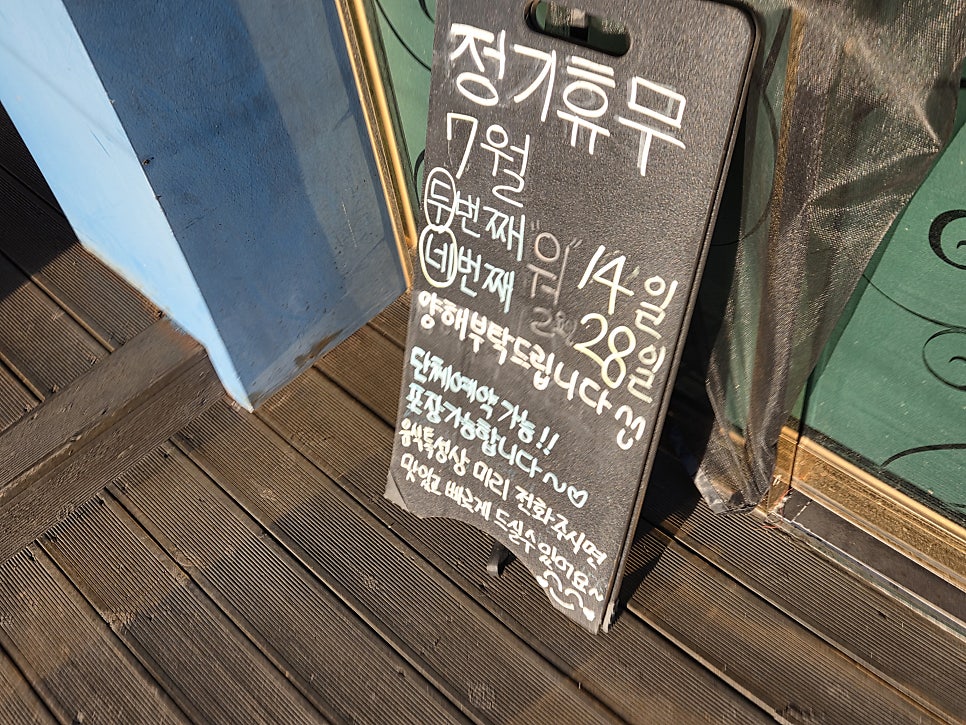 정기휴무
7월
두번째 "월 14일
네번째 28일
양해부탁드립니다~
단체예약 가능!!
포장가능합니다~♡
음식특성상 미리 전화주시면
맛있고 빠르게 드실수있어요~